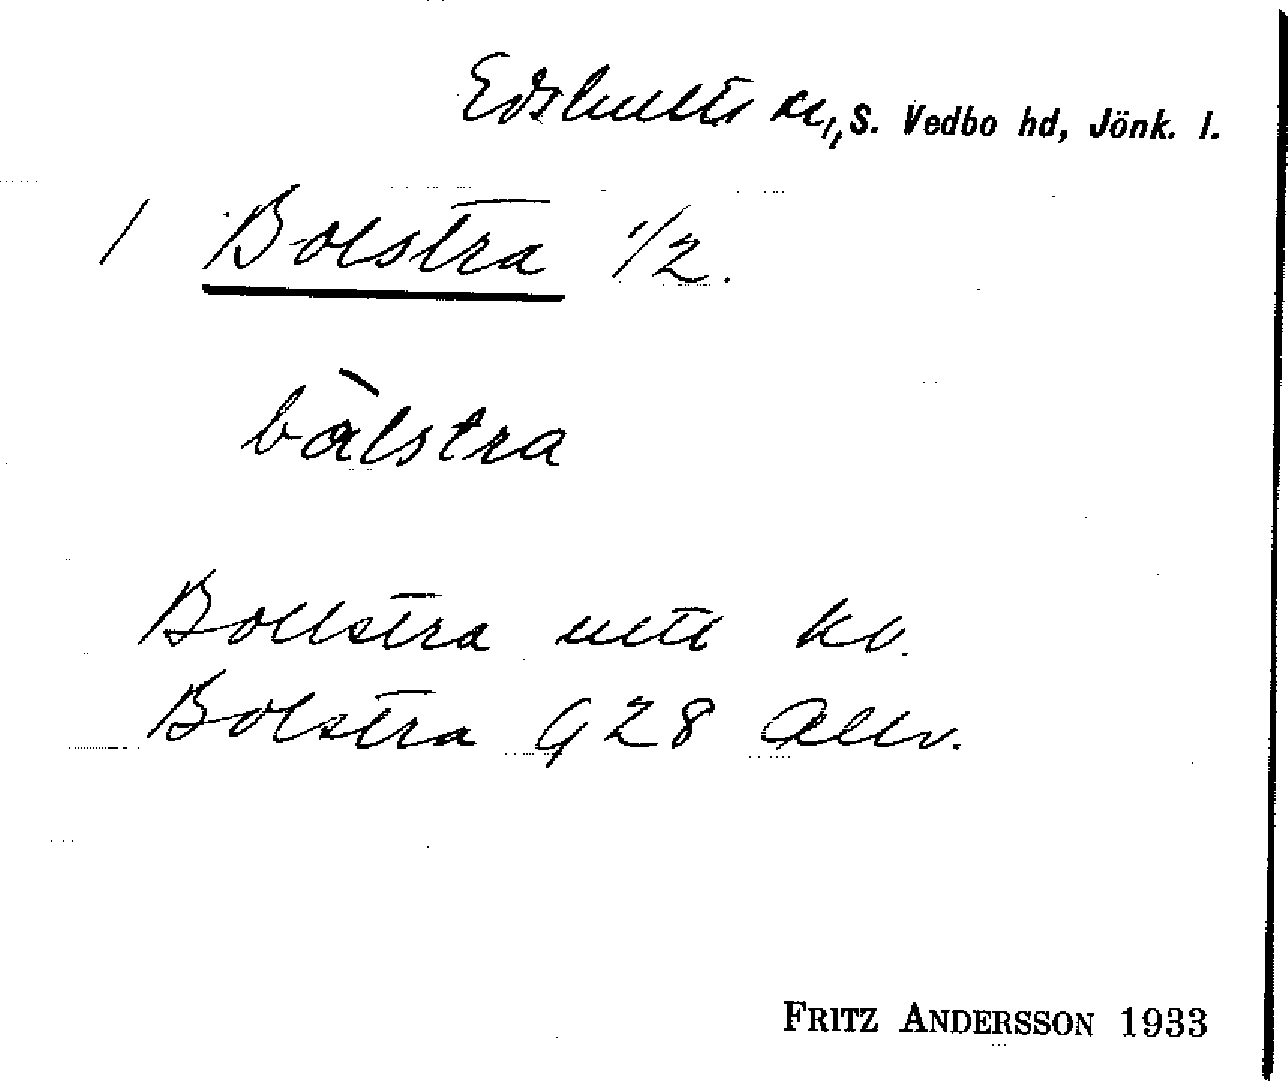 Edshults sn, S. Vedbo hd, Jönk. l.
1 Bolstra 1/2.
bàlstra
Bollstra utt kv.
Bolstra G 28 Allv.
FRITZ ANDERSSON 1933